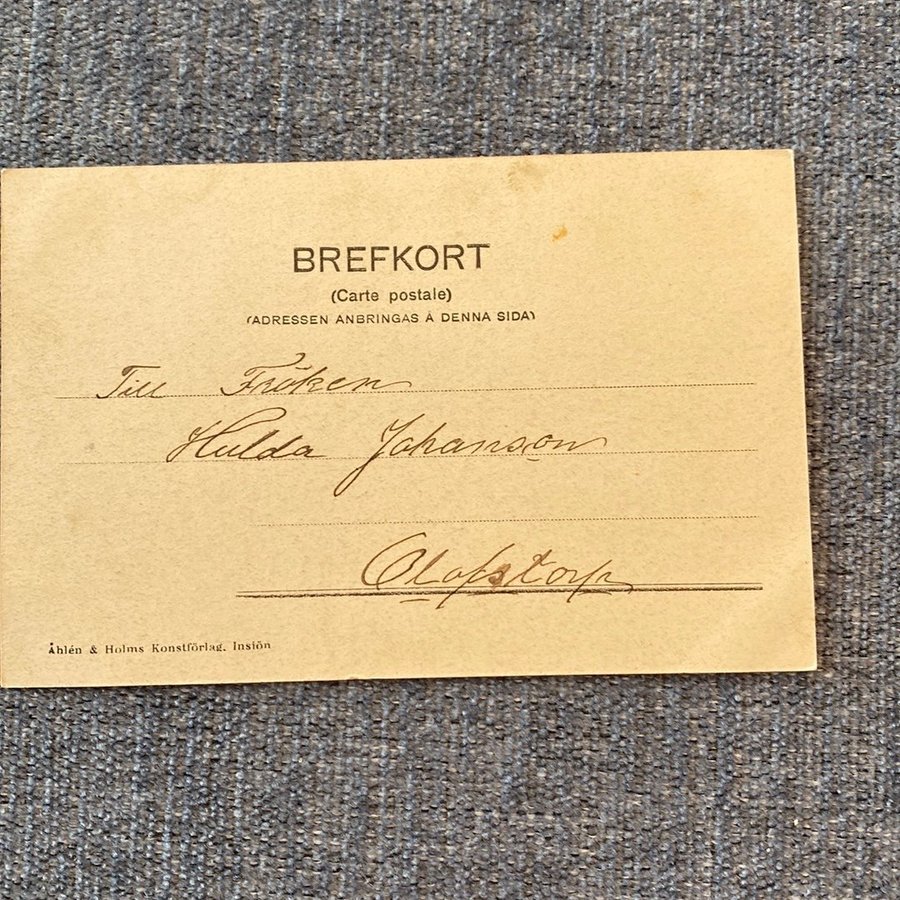 BREFKORT
(Carte postale)
(ADRESSEN ANBRINGAS Å DENNA SIDA)
Till Fröken
Hulda Johanson
Olofstorp
Åhlén & Holms Konstförlag, Insjön